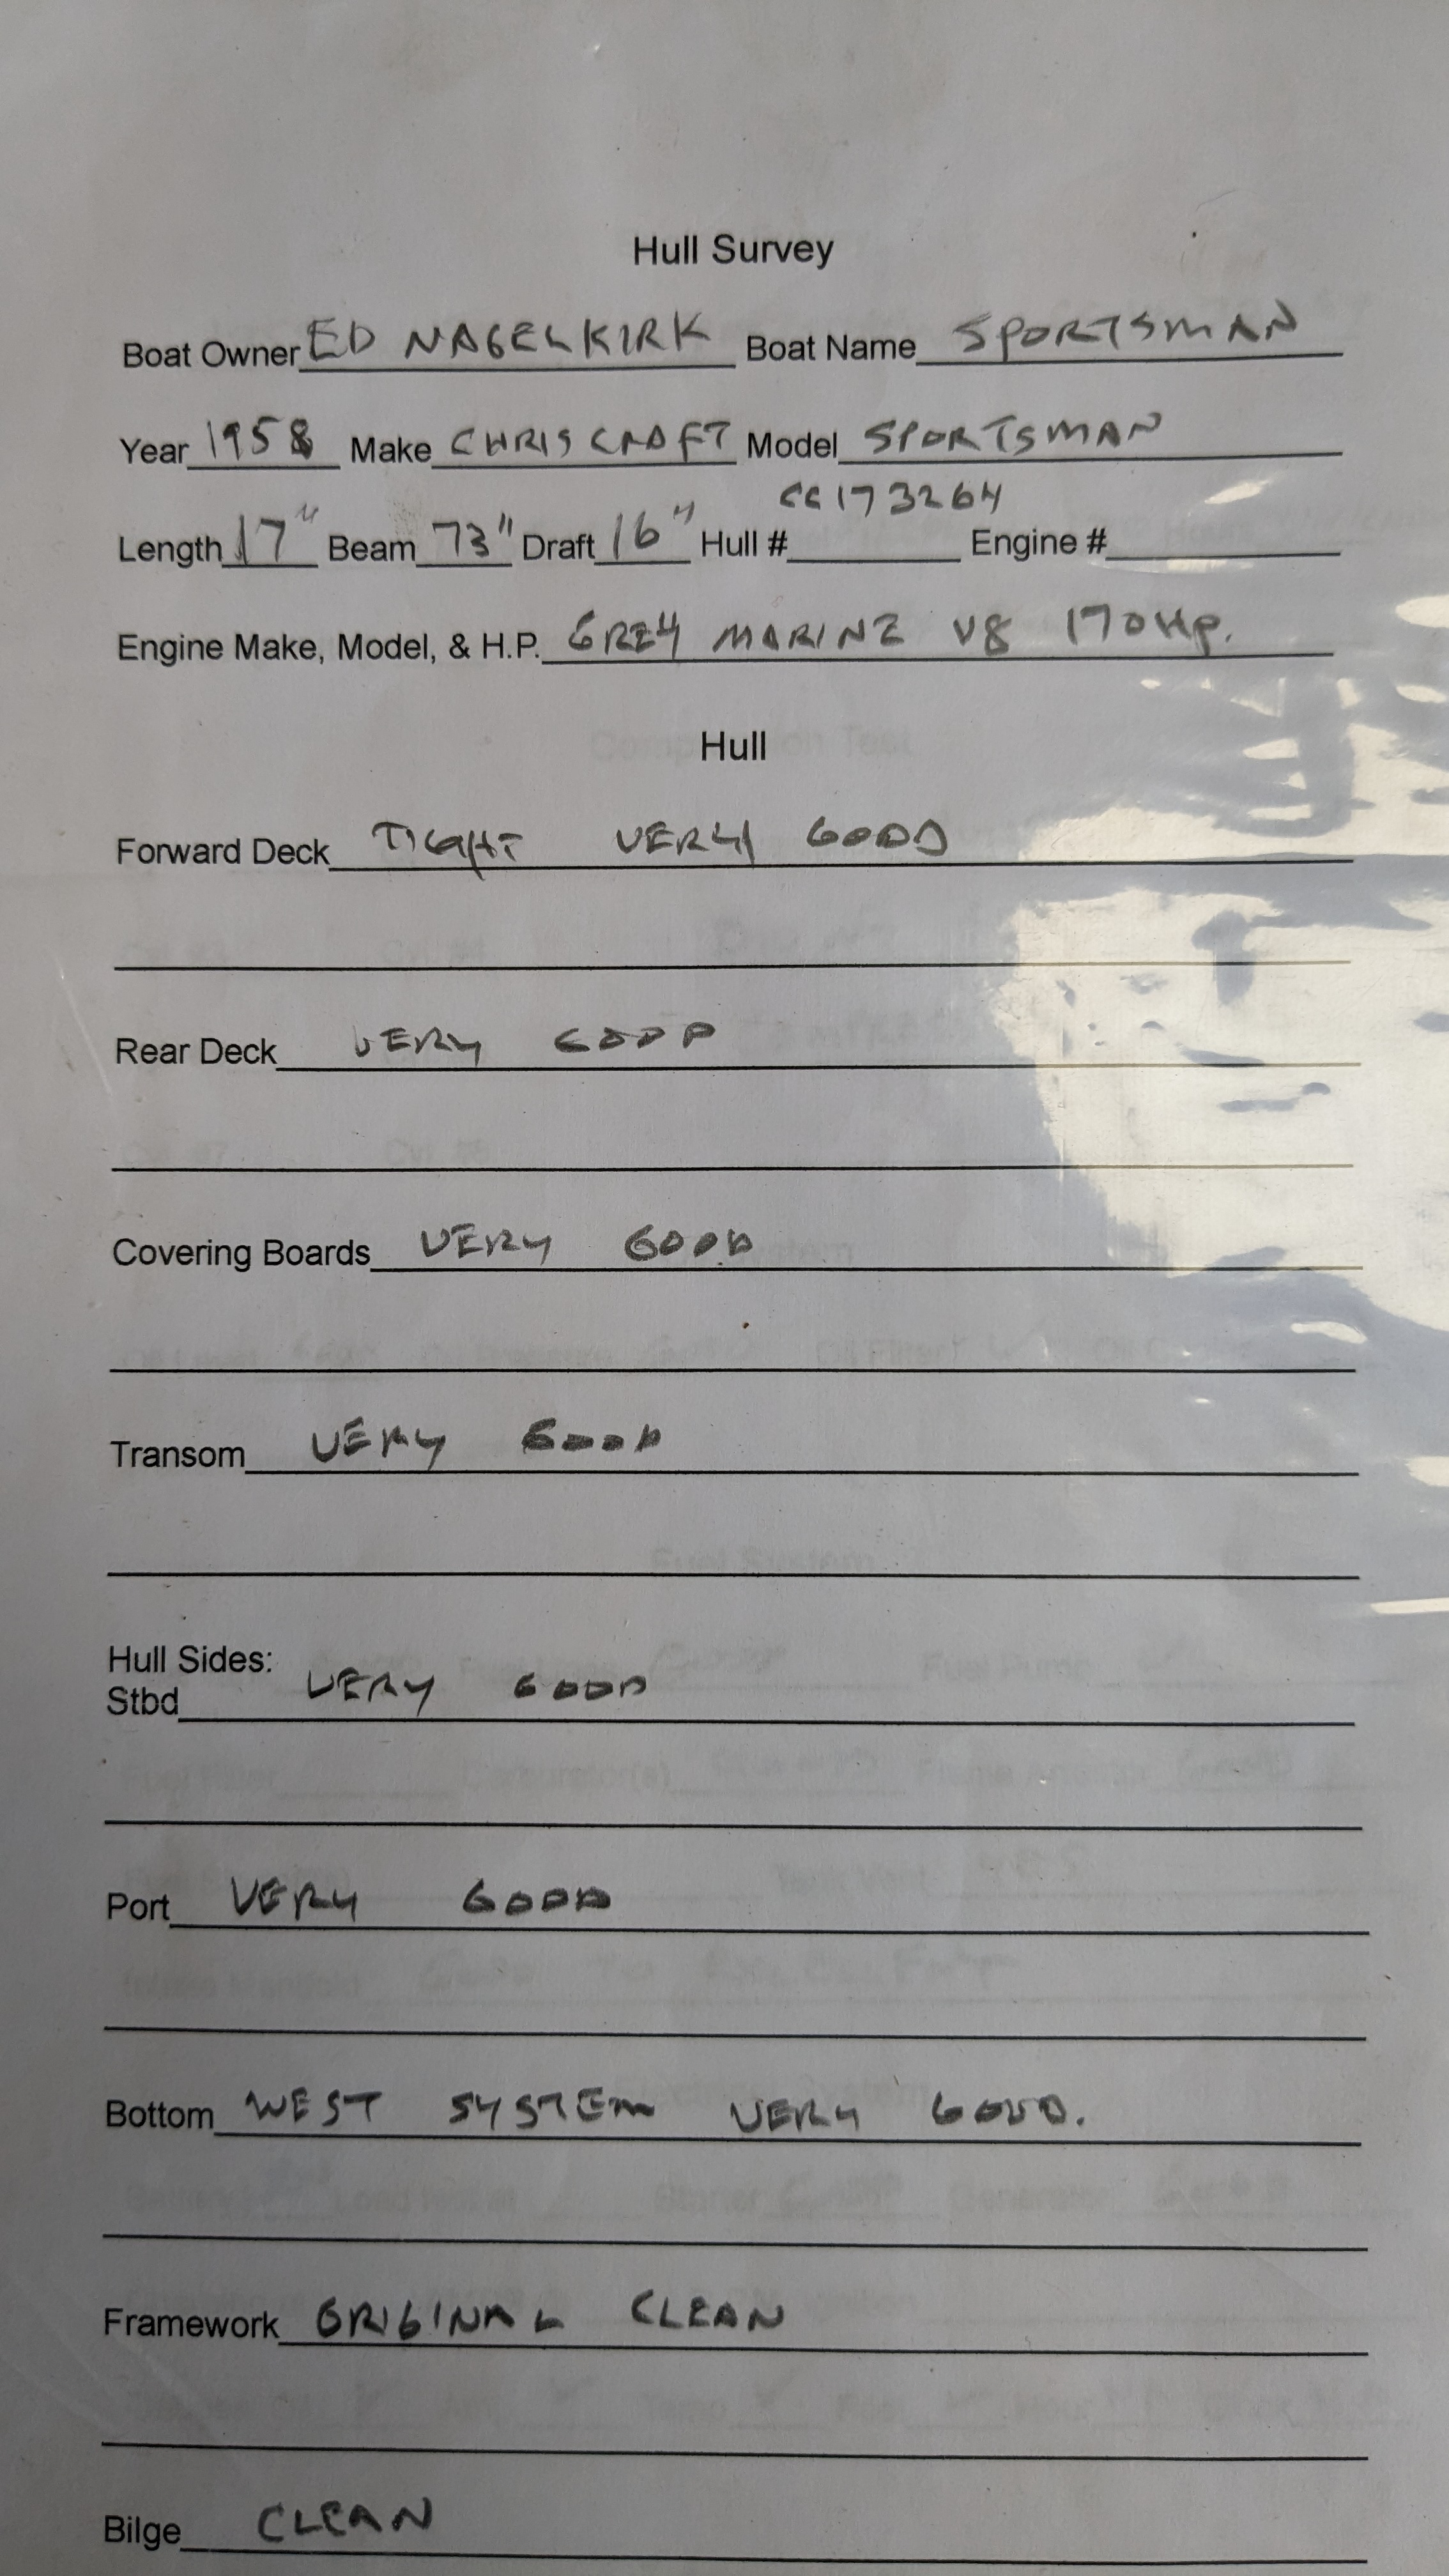 Hull Survey
Boat Owner ED NAGELKIRK Boat Name SPORTSMAN
Year 1958 Make CHRISCRAFT Model SPORTSMAN
CC173264
Length 17" Beam 73" Draft 16" Hull # Engine #
Engine Make, Model, & H.P. GREY MARINE V8 170 Hp.
Hull
Forward Deck TIGHT VERY GOOD
Rear Deck VERY GOOD
Covering Boards VERY GOOD
Transom VERY GOOD
Hull Sides:
Stbd VERY GOOD
Port VERY GOOD
Bottom WEST SYSTEM VERY GOOD.
Framework ORIGINAL CLEAN
Bilge CLEAN